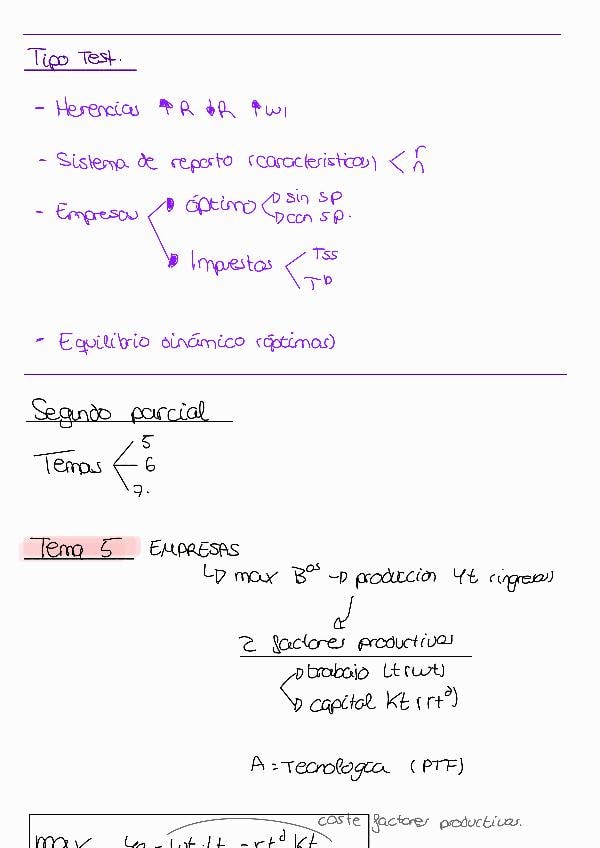 Tipo Test.
- Herencias ↑R ↓R ↑W1
- Sistema de reparto (características) < r n
- Empresas
óptimo
sin SP
con SP.
Impuestos
Tss
Tb
- Equilibrio dinámico (óptimas)
Segundo parcial
Temas
5
6
7.
Tema 5 EMPRESAS
↳ max Bos → producción Yt (ingresos)
2 factores productivos
trabajo Lt (wt)
capital Kt (rtd)
A = Tecnología (PTF)
coste factores productivos.
max - wt·Lt - rtd Kt